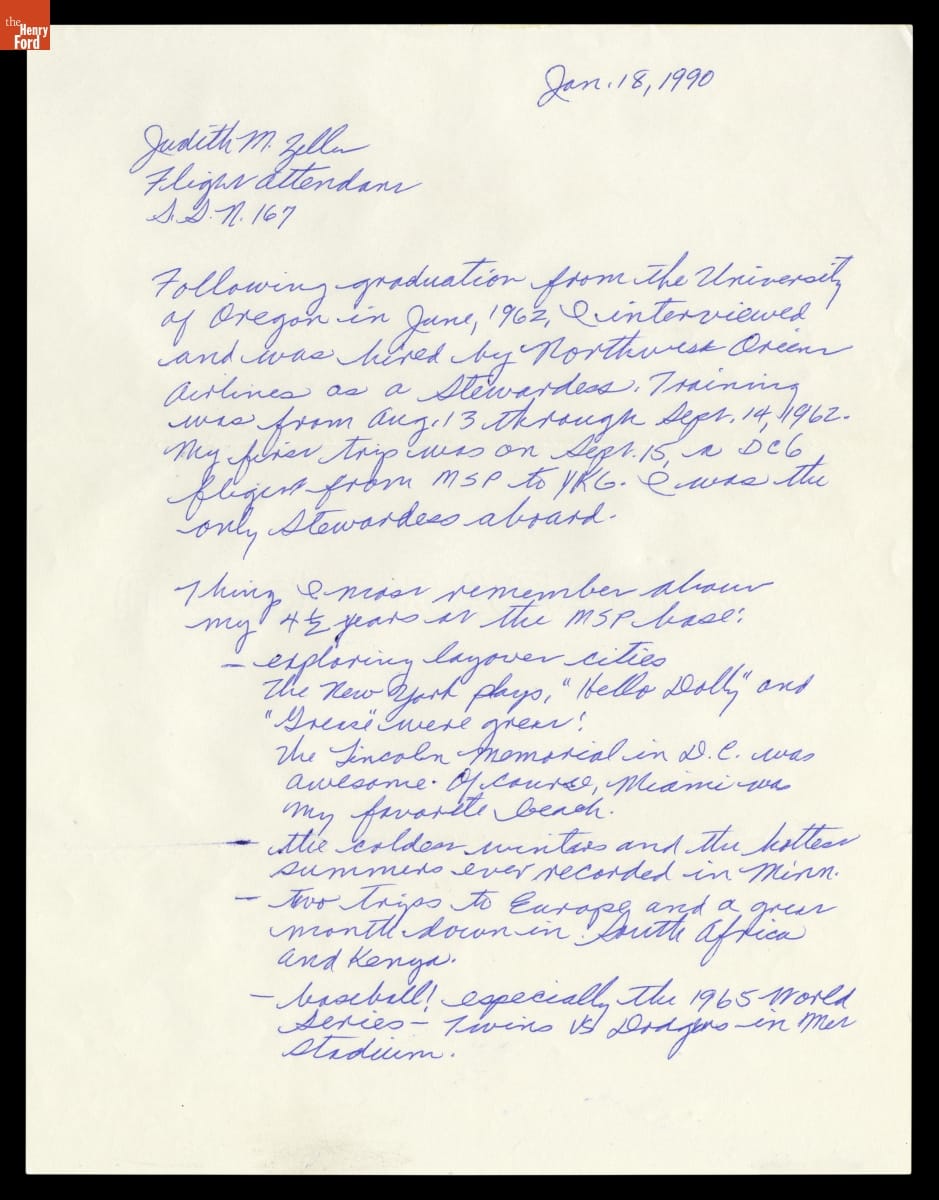 the
Henry
Ford
Jan. 18, 1990
Judith M. Zeller
Flight attendant
S.S.N. 167
Following graduation from the University
of Oregon in June, 1962, I interviewed
and was hired by Northwest Orient
Airlines as a Stewardess. Training
was from Aug. 13 through Sept. 14, 1962.
My first trip was on Sept. 15, a DC6
flight from MSP to YKG. I was the
only Stewardess aboard.
Things I most remember about
my 4½ years at the MSP base:
- exploring layover cities
The New York plays, "Hello Dolly" and
"Grease" were great!
The Lincoln Memorial in D.C. was
awesome. Of course, Miami was
my favorite beach.
- the coldest winters and the hottest
summers ever recorded in Minn.
- two trips to Europe, and a great
month down in South Africa
and Kenya.
- baseball! especially the 1965 World
Series - Twins vs Dodgers - in Met
Stadium.